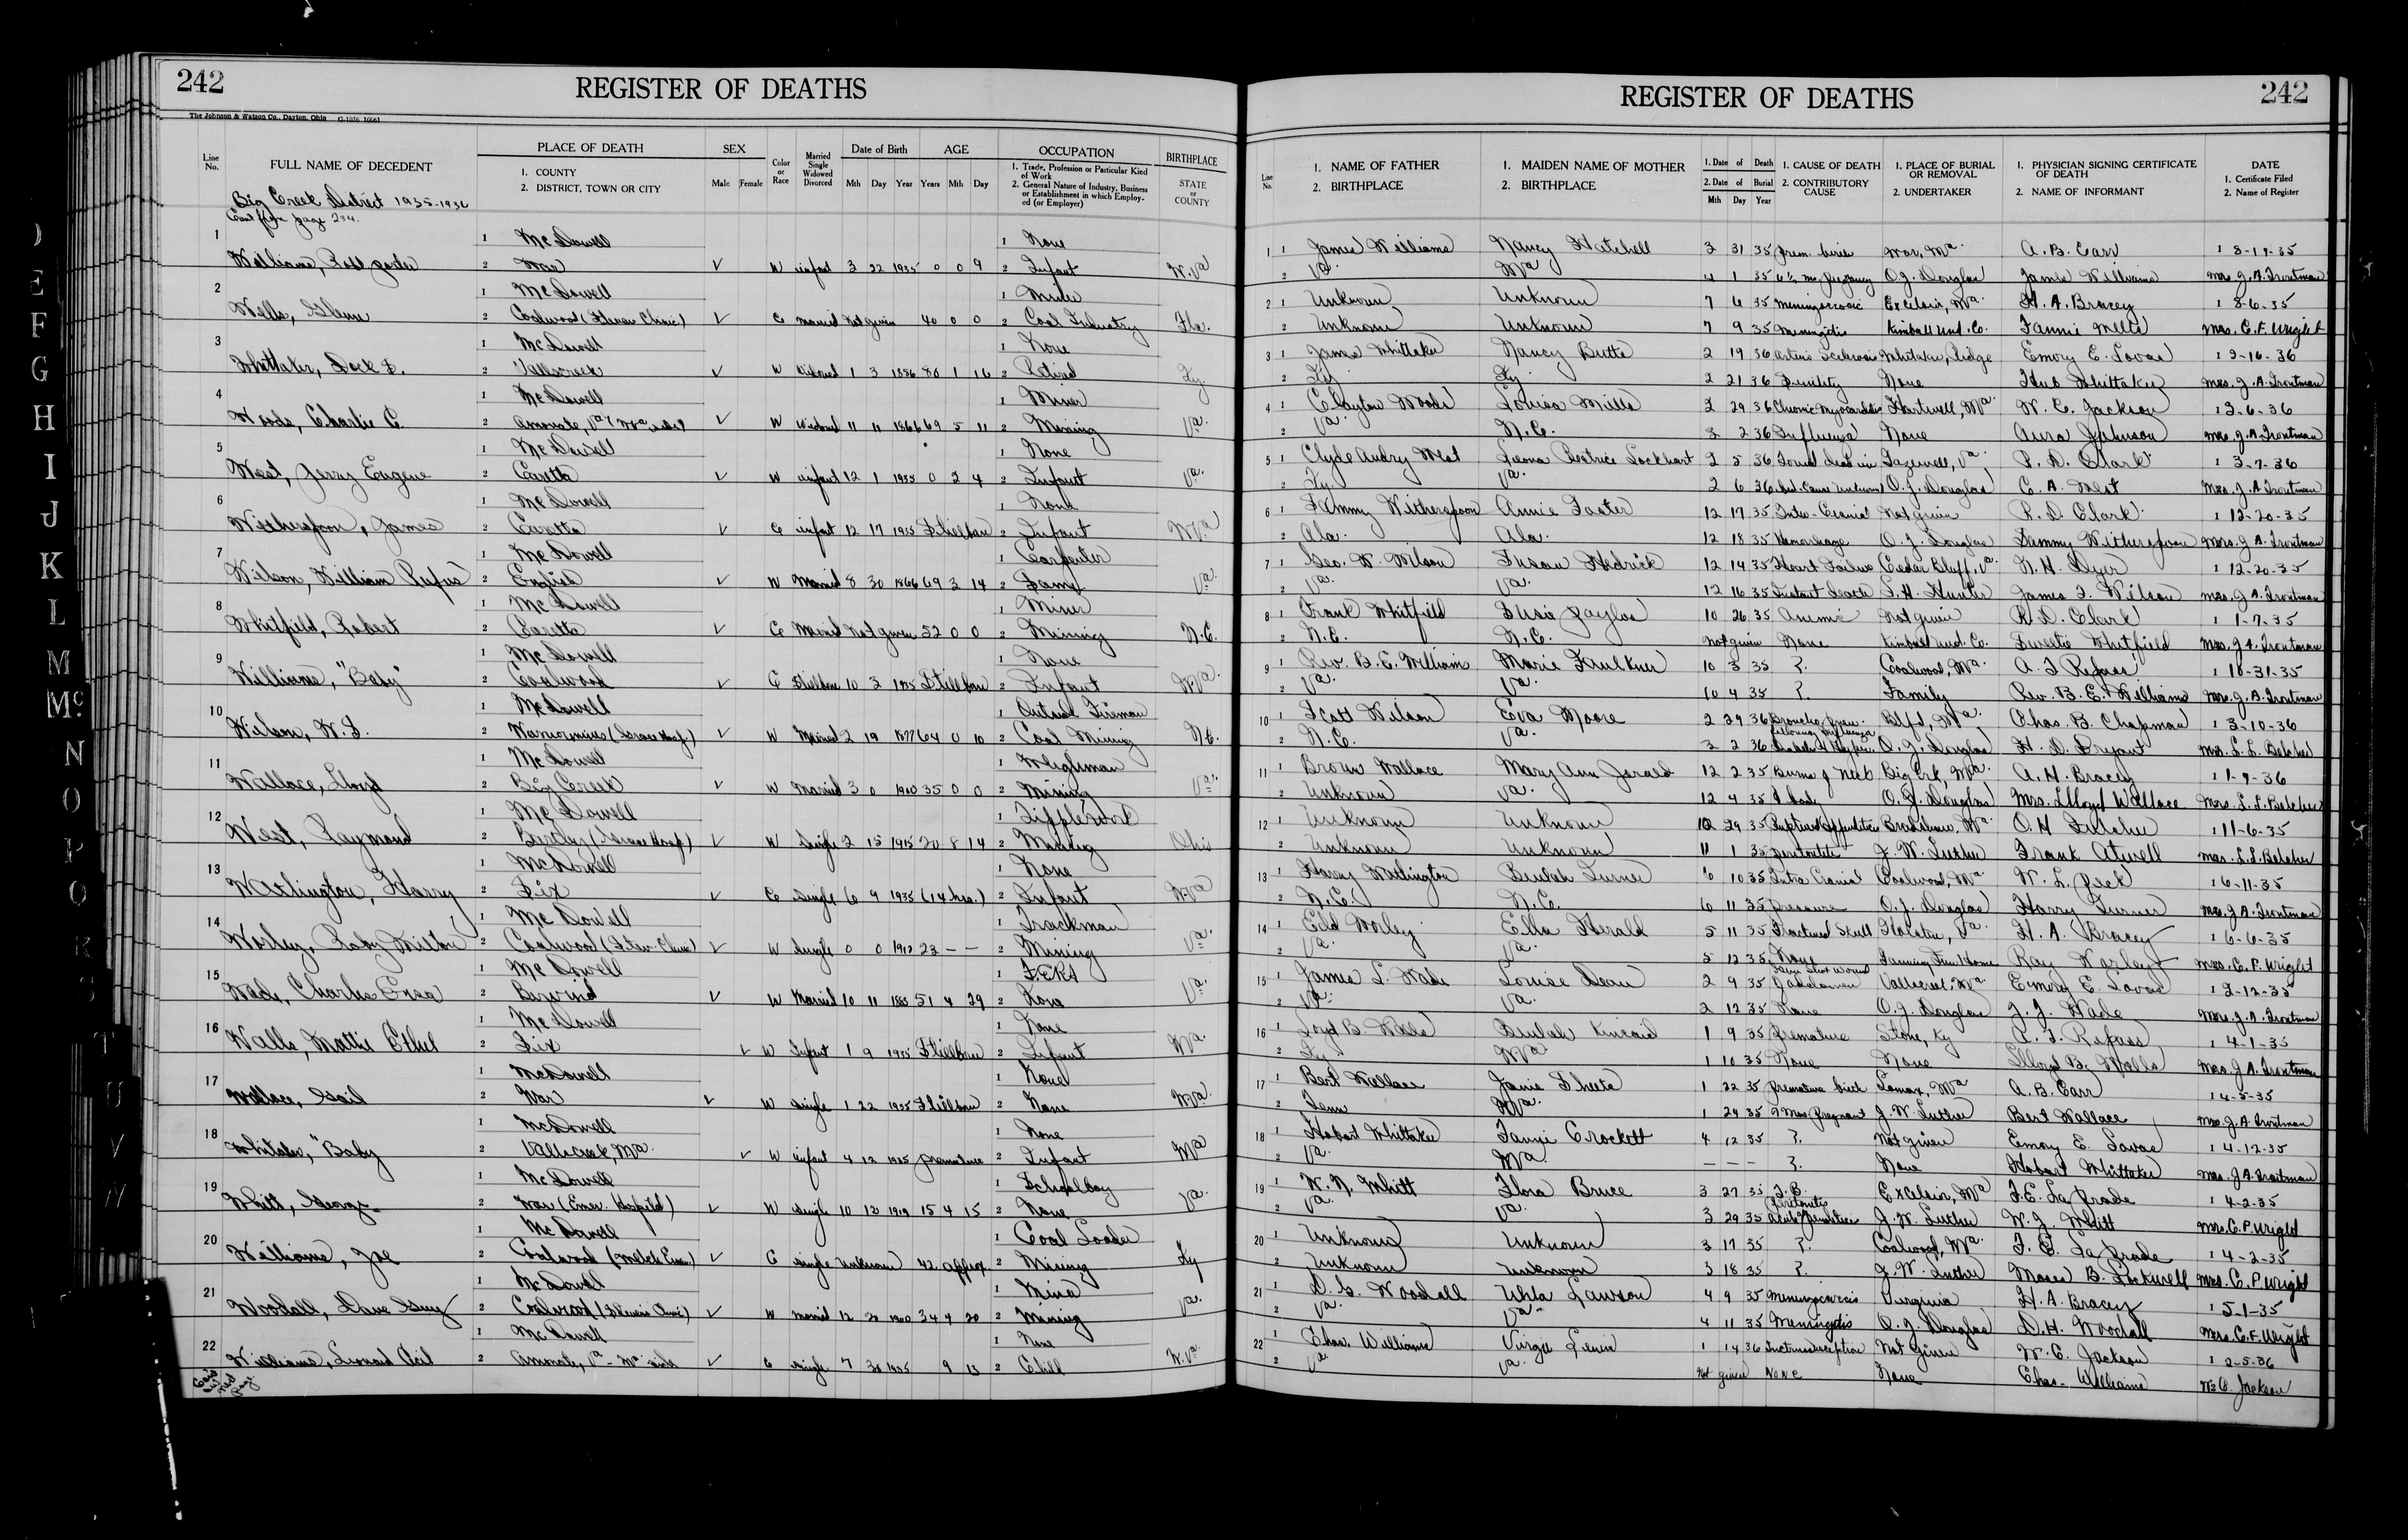 242
REGISTER OF DEATHS
The Johnson & Watson Co., Dayton, Ohio
Line No.
FULL NAME OF DECEDENT
PLACE OF DEATH
1. COUNTY
2. DISTRICT, TOWN OR CITY
SEX
Male Female
Color or Race
Married Single Widowed Divorced
Date of Birth
Mth Day Year
AGE
Years Mth Day
OCCUPATION
1. Trade, Profession or Particular Kind of Work
2. General Nature of Industry, Business or Establishment in which Employed (or Employer)
BIRTHPLACE
STATE or COUNTY
Big Creek District 1935-1936
1 McDowell 1 None
1 Williams, 2 War W infant 3 22 1935 0 0 9 2 Infant W.Va
1 McDowell 1 Miner
2 Wells, Glenn 2 Coalwood (Stevens Clinic) C Married Not given 40 0 0 2 Coal Industry Fla.
1 McDowell 1 None
3 Whittaker, Dock 2 Vallscreek W Widowed 1 3 1856 80 1 16 2 Retired Ky.
1 McDowell 1 Miner
4 Woods, Charlie C. 2 Amonate, Va W Widowed 11 11 1866 69 5 11 2 Mining Va.
1 McDowell 1 None
5 West, Jerry Eugene 2 Caretta W infant 12 1 1935 0 2 4 2 Infant Va.
1 McDowell 1 None
6 Witherspoon, James 2 Caretta C infant 12 17 1935 Stillborn 2 Infant W.Va
1 McDowell 1 Carpenter
7 Wilson, William Rufus 2 English W Married 8 30 1866 69 3 14 2 Va.
1 McDowell 1 Miner
8 Whitfield, Robert 2 Caretta C Married Not given 52 0 0 2 Mining N.C.
1 McDowell 1 None
9 Williams, "Baby" 2 Coalwood C Stillborn 10 3 1935 Stillborn 2 Infant W.Va
1 McDowell 1 Outside Fireman
10 Wilson, W. 2 Warriormine W Married 2 19 64 0 10 2 Coal Mining N.C.
1 McDowell 1 Weighman
11 Wallace, Lloyd 2 Big Creek W Married 3 0 1900 35 0 0 2 Mining Va.
1 McDowell 1 Tipple Work
12 West, Raymond 2 Bartley W Single 2 15 1915 20 8 14 2 Mining Ohio
1 McDowell 1 None
13 Worlington, Harry 2 Six C Single 6 9 1935 (14 hrs.) 2 Infant W.Va
1 McDowell 1 Trackman
14 Worley, Roby Milton 2 Coalwood (Stev. Clinic) W Single 0 0 1912 23 - - 2 Mining Va.
1 McDowell 1
15 Wade, Charles 2 Berwind W Married 10 11 1883 51 4 29 2 None Va.
1 McDowell 1 None
16 Walls, Mattie Ethel 2 Six W Infant 1 9 1935 Stillborn 2 Infant W.Va.
1 McDowell 1 None
17 Wallace, Gail 2 War W Single 1 22 1935 Stillborn 2 None W.Va.
1 McDowell 1 None
18 Whitaker, "Baby" 2 Vallscreek, W.Va. W infant 4 12 1935 premature 2 Infant W.Va
1 McDowell 1 Schoolboy
19 Whitt, George 2 War (Emer. Hospital) W Single 10 12 1919 15 4 15 2 None Va.
1 McDowell 1 Coal Loader
20 Williams, Joe 2 Coalwood C Single Unknown 42 approx. 2 Mining Ky
1 McDowell 1 Miner
21 Woodall, Dave Guy 2 Coalwood (Stevens Clinic) W Married 12 20 1900 34 4 20 2 Mining Va.
1 McDowell 1 None
22 Williams, Leonard 2 Amonate, Va - W.Va side C Single 7 1935 9 2 Child W.Va.
242
REGISTER OF DEATHS
Line No.
1. NAME OF FATHER
2. BIRTHPLACE
1. MAIDEN NAME OF MOTHER
2. BIRTHPLACE
1. Date of Death
2. Date of Burial
Mth Day Year
1. CAUSE OF DEATH
2. CONTRIBUTORY CAUSE
1. PLACE OF BURIAL OR REMOVAL
2. UNDERTAKER
1. PHYSICIAN SIGNING CERTIFICATE OF DEATH
2. NAME OF INFORMANT
DATE
1. Certificate Filed
2. Name of Register
1 1 James Williams Nancy Hatchell 3 31 35 Prem. birth War, W.Va. A. B. Carr
2 Va. W.Va 4 1 35 O. J. Douglas James Williams Mrs. J. A. Troutman
2 1 Unknown Unknown 7 6 35 Meningococcic Excelsior, W.Va. H. A. Bracey 1 8-6-35
2 Unknown Unknown 7 9 35 Meningitis Kimball Und. Co. Fannie Wells Mrs. C. F. Wright
3 1 James Whittaker Nancy Butts 2 19 36 Whitaker, Ridge Emory E. Lovas
2 Ky Ky 2 21 36 Senility None Whittaker Mrs. J. A. Troutman
4 1 Clayton Woods Louisa Mills 2 29 36 Chronic Myocarditis Hartwell, W.Va. W. C. Jackson 1 3-6-36
2 Va. N.C. 3 2 36 Influenza None Aura Johnson Mrs. J. A. Troutman
5 1 Clyde Audry West Leona Beatrice Lockhart 2 5 36 Found dead in Tazewell, Va. R. D. Clark 1 3-7-36
2 Ky. Va. 2 6 36 bed. Cause unknown O. J. Douglas C. A. West Mrs. J. A. Troutman
6 1 Sammy Witherspoon Annie Foster 12 17 35 Inter-Cranial Not given R. D. Clark 1 12-20-35
2 Ala. Ala. 12 18 35 Hemorrhage O. J. Douglas Sammy Witherspoon Mrs. J. A. Troutman
7 1 Geo. W. Wilson Susan Hedrick 12 14 35 Heart Failure Cedar Bluff, Va. N. H. Dyer 1 12-20-35
2 Va. Va. 12 16 35 Instant death Hunter James Wilson Mrs. J. A. Troutman
8 1 Frank Whitfield Susie Taylor 10 26 35 Not given R. D. Clark 1 1-7-35
2 N.C. N.C. Not given None Kimball Und. Co. Sweetie Whitfield Mrs. J. A. Troutman
9 1 Rev. B. E. William Marie Faulkner 10 3 35 ?. Coalwood, W.Va. Repass 1 10-31-35
2 Va. Va. 10 4 35 ?. Family Rev. B. E. Williams Mrs. J. A. Troutman
10 1 Scott Wilson Eva Moore 2 29 36 Broncho pneu. Blfd, W.Va. Chas. B. Chapman 1 3-10-36
2 N.C. Va. 3 2 36 following Influenza O. J. Douglas H. D. Bryant Mrs. L. L. Belcher
11 1 Brown Wallace Mary Ann Jerald 12 2 35 Burns of Neck Big Crk, W.Va. A. H. Bracey 1 1-9-36
2 Unknown Va. 12 4 35 & body O. J. Douglas Mrs. Lloyd Wallace Mrs. L. L. Belcher
12 1 Unknown Unknown 10 29 35 Ruptured Appendicitis Bradshaw, W.Va. O. H. Fulcher 1 11-6-35
2 Unknown Unknown 11 1 35 peritonitis J. W. Luther Frank Atwell Mrs. L. L. Belcher
13 1 Harry Beulah Turner 6 10 35 Intra Cranial Coalwood, W.Va W. L. Peck 1 6-11-35
2 N.C. N.C. 6 11 35 Pressure O. J. Douglas Harry Turner Mrs. J. A. Troutman
14 1 Worley Ella Herald 5 11 35 Fractured Skull Holston, Va. H. A. Bracey 1 6-6-35
2 Va. Va. 5 12 35 None Ray Worley Mrs. C. F. Wright
15 1 James L. Wade Louise Dean 2 9 35 Vallscreek, W.Va Emory E. Lovas
2 Va. Va. 2 12 35 None O. J. Douglas J. J. Wade Mrs. J. A. Troutman
16 1 Loyd B. Walls Beulah Kincaid 1 9 35 Premature Stone, Ky Repass 1 4-1-35
2 Ky W.Va 1 10 35 None None Lloyd B. Walls Mrs. J. A. Troutman
17 1 Bert Wallace Janie Sheets 1 22 35 Premature birth Lomax, W.Va A. B. Carr 1 4-5-35
2 Tenn W.Va. 1 24 35 J. W. Luther Bert Wallace Mrs. J. A. Troutman
18 1 Hobart Whittaker Crockett 4 12 35 ?. Not given Emory E. Lovas 1 4-12-35
2 Va. W.Va. - - - ?. None Hobart Whittaker Mrs. J. A. Troutman
19 1 W. N. Whitt Flora Bruce 3 27 35 T.B. Peritonitis Excelsior, W.Va La Prade 1 4-2-35
2 Va. Va. 3 29 35 J. W. Luther W. J. Whitt Mrs. C. P. Wright
20 1 Unknown Unknown 3 17 35 ?. Coalwood, W.Va. La Prade 1 4-2-35
2 Unknown Unknown 3 18 35 ?. J. W. Luther Moses B. Mrs. C. P. Wright
21 1 D. G. Woodall Lawson 4 9 35 Meningococcic Virginia H. A. Bracey 1 5-1-35
2 Va. Va. 4 11 35 Meningitis O. J. Douglas D. H. Woodall Mrs. C. F. Wright
22 1 Chas. Williams Virgie Lewis 1 14 36 Intussusception Not Given W. C. Jackson 1 2-5-36
2 Va. Va. Not given None None Chas. Williams W. C. Jackson
D
E
F
G
H
I
J
K
L
M
Mc
N
O
P
Q
R
S
T
U
V
W